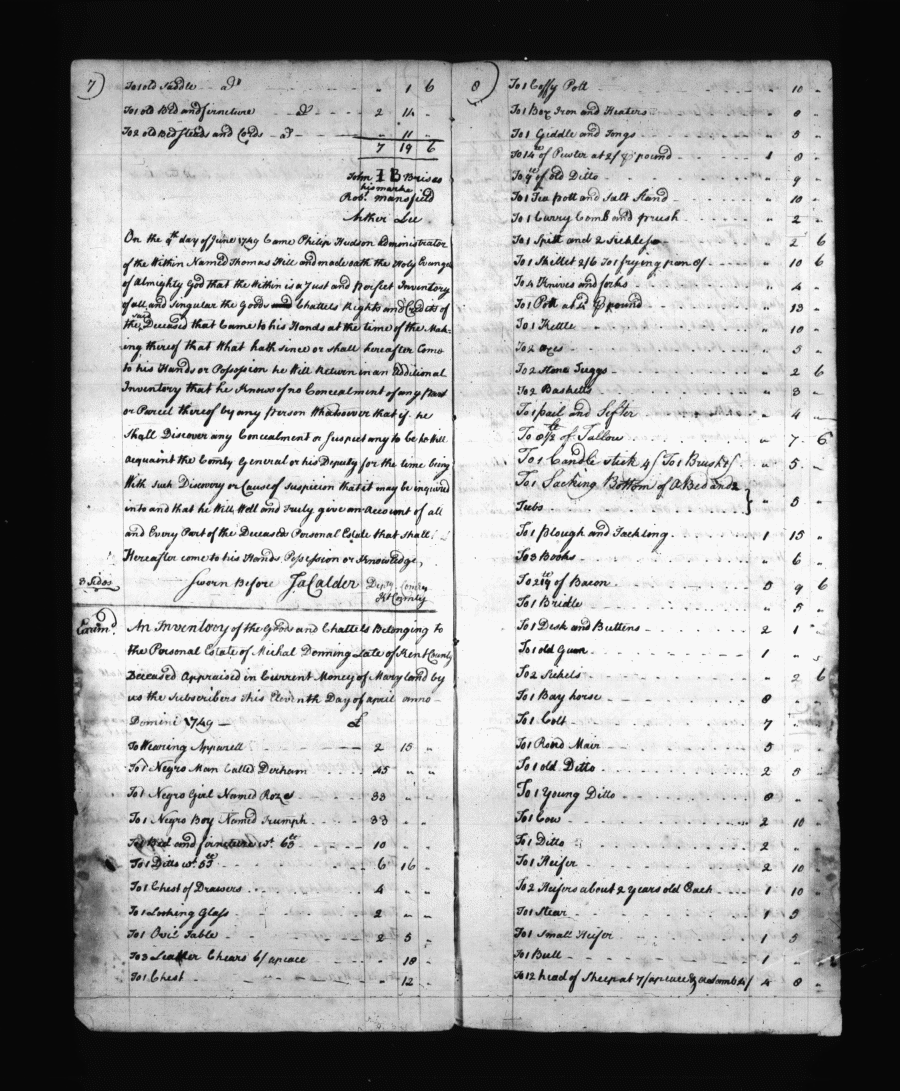 7)
To 1 old Saddle do " 1 6
To 1 old Bed and furneture do 2 14 "
To 2 old Bedsteads and Cords do " 11 "
7 19 6
John I B Brisco
his marke
Robt. Mansfield
Arther Lee
On the 9th day of June 1749 Came Philip Hudson Administrator
of the Within Named Thomas Hill and made oath the Holy Evange
of Almighty God that the Within is a Just and Perfect Inventory
of all and Singular the Goods and Chattels Rights and Credits of
the said Deceased that Came to his Hands at the time of the Mak-
ing thereof that What hath since or shall hereafter Come
to his Hands or Possession he Will Return in an Additional
Inventory that he Knows of no Concealment of any Part
or Parcel thereof by any Person Whatsoever that if he
Shall Discover any Concealment or Suspect any to be he Will
acquaint the Comty General or his Deputy for the time being
With such Discovery or Cause of Suspicion that it may be inquired
into and that he Will Well and truly give an Account of all
and Every Part of the Deceased Personal Estate that Shall
Hereafter come to his Hands Possession or Knowledge,
3 Sides Sworn Before Ja Calder Depty Comry
Kt County
Examd.
An Inventory of the Goods and Chattels Belonging to
the Personal Estate of Michal Donning Late of Kent County
Deceased Appraised in Current Money of Maryland by
us the Subscribers this Eleventh Day of april anno
Domini 1749 £
To Wearing Apparell 2 15 "
To 1 Negro Man Called Derham 45 " "
To 1 Negro Girl Named Roze 33 " "
To 1 Negro Boy Named Trumph 33 " "
To 1 Bed and furneture wt. 63 lb 10 " "
To 1 Ditto wt. 53 lb 6 16 "
To 1 Chest of Drawers 4 " "
To 1 Looking Glass 2 " "
To 1 Ovil Table 2 5 "
To 3 Leather Chears 6/ apeace " 18 "
To 1 Chest " 12 "
8)
To 1 Coffy Pott " 10 "
To 1 Box Iron and Heaters " 8 "
To 1 Griddle and Tongs " 5 "
To 14 lb of Pewter at 2/ p pound 1 8 "
To 9 lb of old Ditto " 9 "
To 1 Tea pott and Salt Stand " 10 "
To 1 Curry Comb and Brush " 2 "
To 1 Spitt and 2 Sickles " 2 6
To 1 Skillet 2/6 To 1 frying pan 8/ " 10 6
To 4 Knives and forks " 4 "
To 1 Pott at 4d p pound " 13 "
To 1 Kettle " 10 "
To 2 axes " 5 "
To 2 Stone Juggs " 2 6
To 2 Basketts " 3 "
To 1 pail and Sifter " 4 "
of Tallow " 7 6
To 1 Candle stick 4/ To 1 Brush 1/ " 5 "
To 1 Sacking Bottom of a Bed and 2
Tubs " 5 "
To 1 plough and Tackling 1 15 "
To 3 Books " 6 "
of Bacon 5 9 6
To 1 Bridle " 5 "
To 1 Desk and Buttens 2 1 "
To 1 old Guun 1 " "
To 2 Sickels " 2 6
To 1 Bay horse 8 " "
To 1 Colt 7 " "
To 1 Roned Mair 5 " "
To 1 old Ditto 2 5 "
To 1 Young Ditto 8 " "
To 1 Cow 2 10 "
To 1 Ditto 2 " "
To 1 Heifer 2 10 "
To 2 Heifers about 2 years old Each 1 10 "
To 1 Stear 1 5 "
To 1 Small Heifer 1 5 "
To 1 Bull 1 " "
To 12 head of Sheep at 7/ apeace & a Lamb 4/ 4 8 "